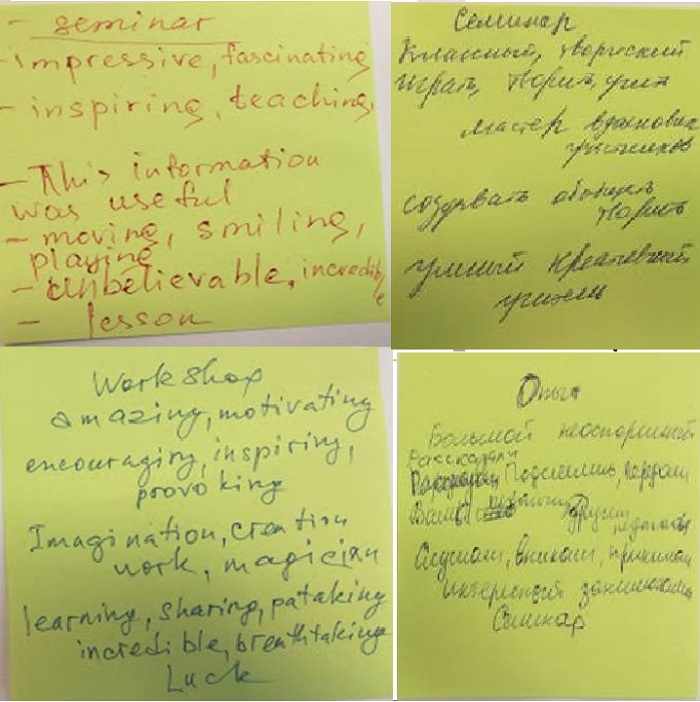 - seminar
- impressive, fascinating
- inspiring, teaching,
- This information
was useful
- moving, smiling,
playing
- Unbelievable, incredible
- lesson
Семинар
Классный, творческий
играть, творить, учить
мастер
участников
создавать общать
творить
умный креативный
учитель
Workshop
amazing, motivating
encouraging, inspiring,
provoking
Imagination, creation
work, magician
learning, sharing, pataking
incredible, breathtaking
Luck
Опыт
Большой неоспоримый
Рассказали
Поделились, передали
Вами другим
Слушали, вникали,
Интересный
Семинар